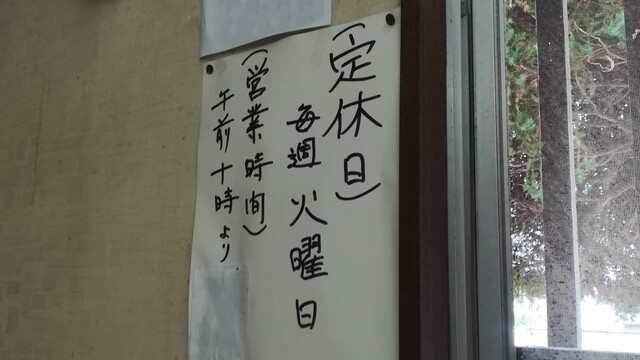 (定休日)
毎週火曜日
(営業時間)
午前十時より